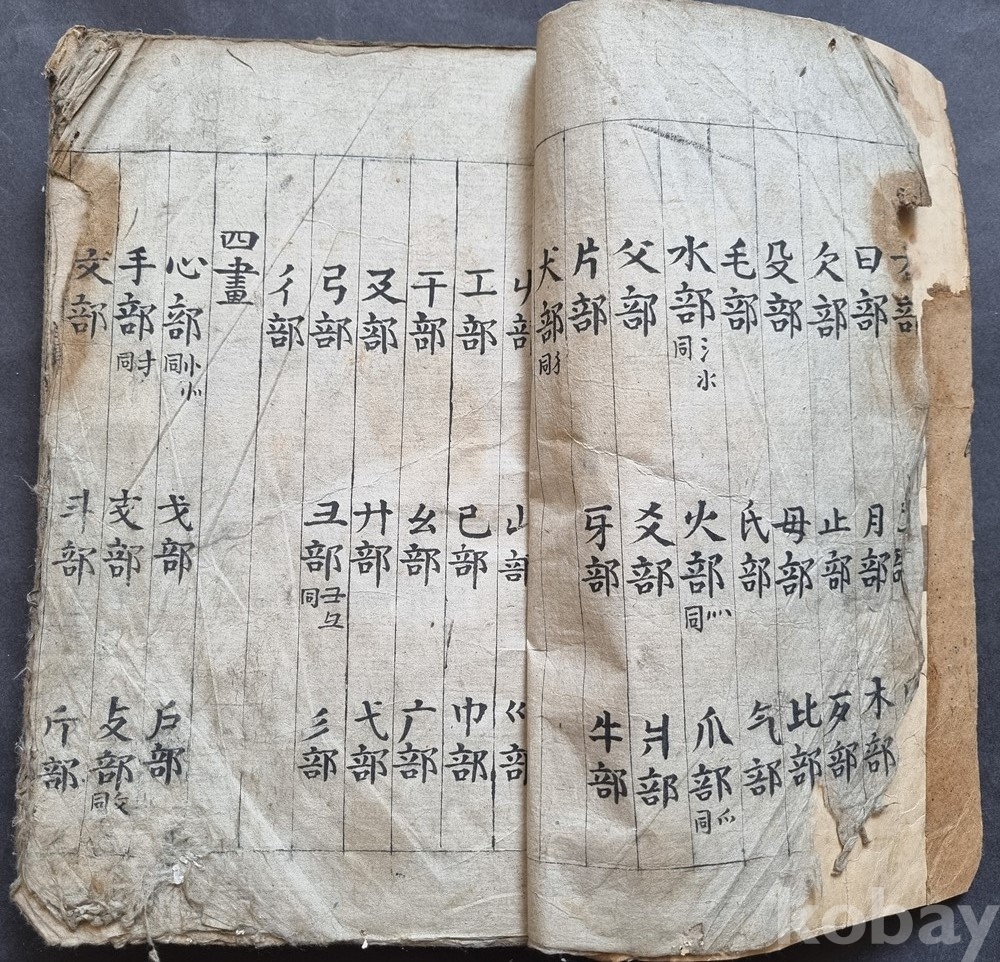 部
曰部 月部 木部
欠部 止部 歹部
殳部 母部 比部
毛部 氏部 气部
水部 氵氺同 火部 灬同 爪部 爫同
父部 爻部 爿部
片部 牙部 牛部
犬部 犭同
屮部 山部 巛部
工部 己部 巾部
干部 幺部 广部
部 廾部 弋部
弓部 彐部 彑同 彡部
彳部
四畫
心部 忄㣺同 戈部 戶部
手部 扌同 支部 攴部 攵同
文部 斗部 斤部
kobay